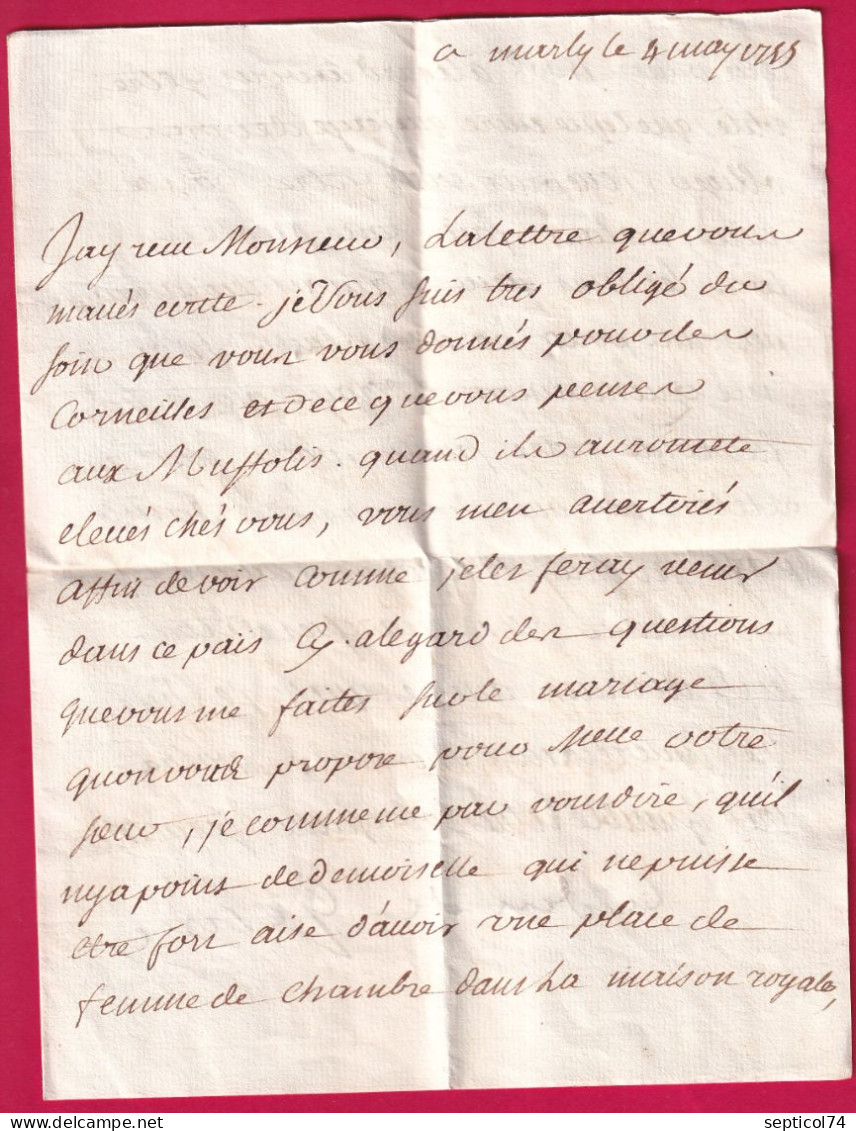 a marly le 4 may 1755
Jay recu Monsieur, la lettre que vous
mavés ecritte. je Vous suis tres obligé du
soin que vous vous donnés pour les
Corneilles et de ce que vous pensez
aux Muffolis. quand ils auront eté
elevés chés vous, vous men avertirés
affin de voir comme je les feray venir
dans ce païs cy. a legard des questions
que vous me faites sur le mariage
quon vous propose pour Melle votre
soeur, je commence par vous dire, qu'il
ny a point de demoiselle qui ne puisse
etre fort aise d'avoir une place de
femme de chambre dans la maison royale,
septicol74